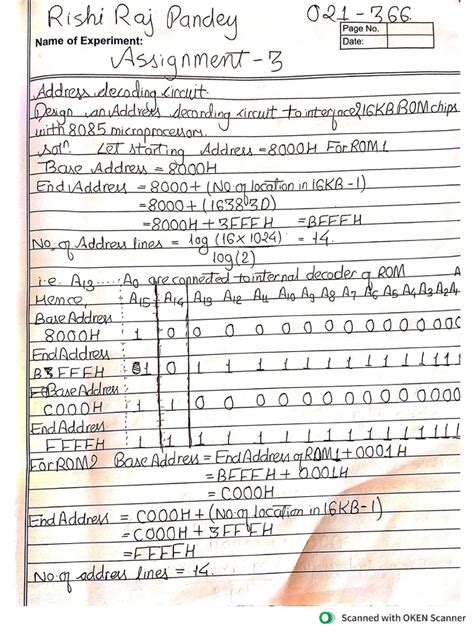 Rishi Raj Pandey 021-366
Page No.
Name of Experiment:
Date:
Assignment-3
Address decoding circuit.
Design an Address decording circuit to interface 2 16KB ROM chips
with 8085 microprocessors.
soln. Let starting Address = 8000H For ROM 1
Base Address = 8000H
End Address = 8000 + (No. of location in 16KB - 1)
= 8000 + (16383D)
= 8000H + 3FFFH = BFFFH
No. of Address lines = log (16 x 1024) = 14.
log(2)
i.e. A13 ..... A0 are connected to internal decoder of ROM
Hence, A15 A14 A13 A12 A11 A10 A9 A8 A7 A6 A5 A4 A3 A2 A1
Base Address
8000H 1 0 0 0 0 0 0 0 0 0 0 0 0 0 0
End Address
BFFFH 1 0 1 1 1 1 1 1 1 1 1 1 1 1 1
Base Address
C000H 1 1 0 0 0 0 0 0 0 0 0 0 0 0 0
End Address
FFFFH 1 1 1 1 1 1 1 1 1 1 1 1 1 1 1
For ROM2 Base Address = End Address of ROM 1 + 0001H
= BFFFH + 0001H
= C000H
End Address = C000H + (No. of location in 16KB-1)
= C000H + 3FFFH
= FFFFH
No. of address lines = 14.
Scanned with OKEN Scanner